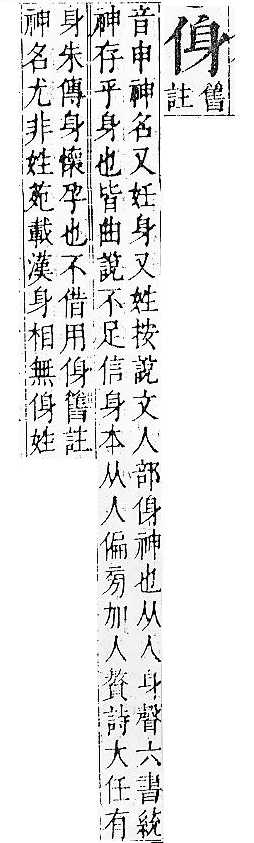 㑗
舊
註
音申神名又妊身又姓按說文人部㑗神也从人身聲六書統
神存乎身也皆曲說不足信身本从人偏旁加人贅詩大任有
身朱傳身懷孕也不借用㑗舊註
神名尤非姓苑載漢身相無㑗姓